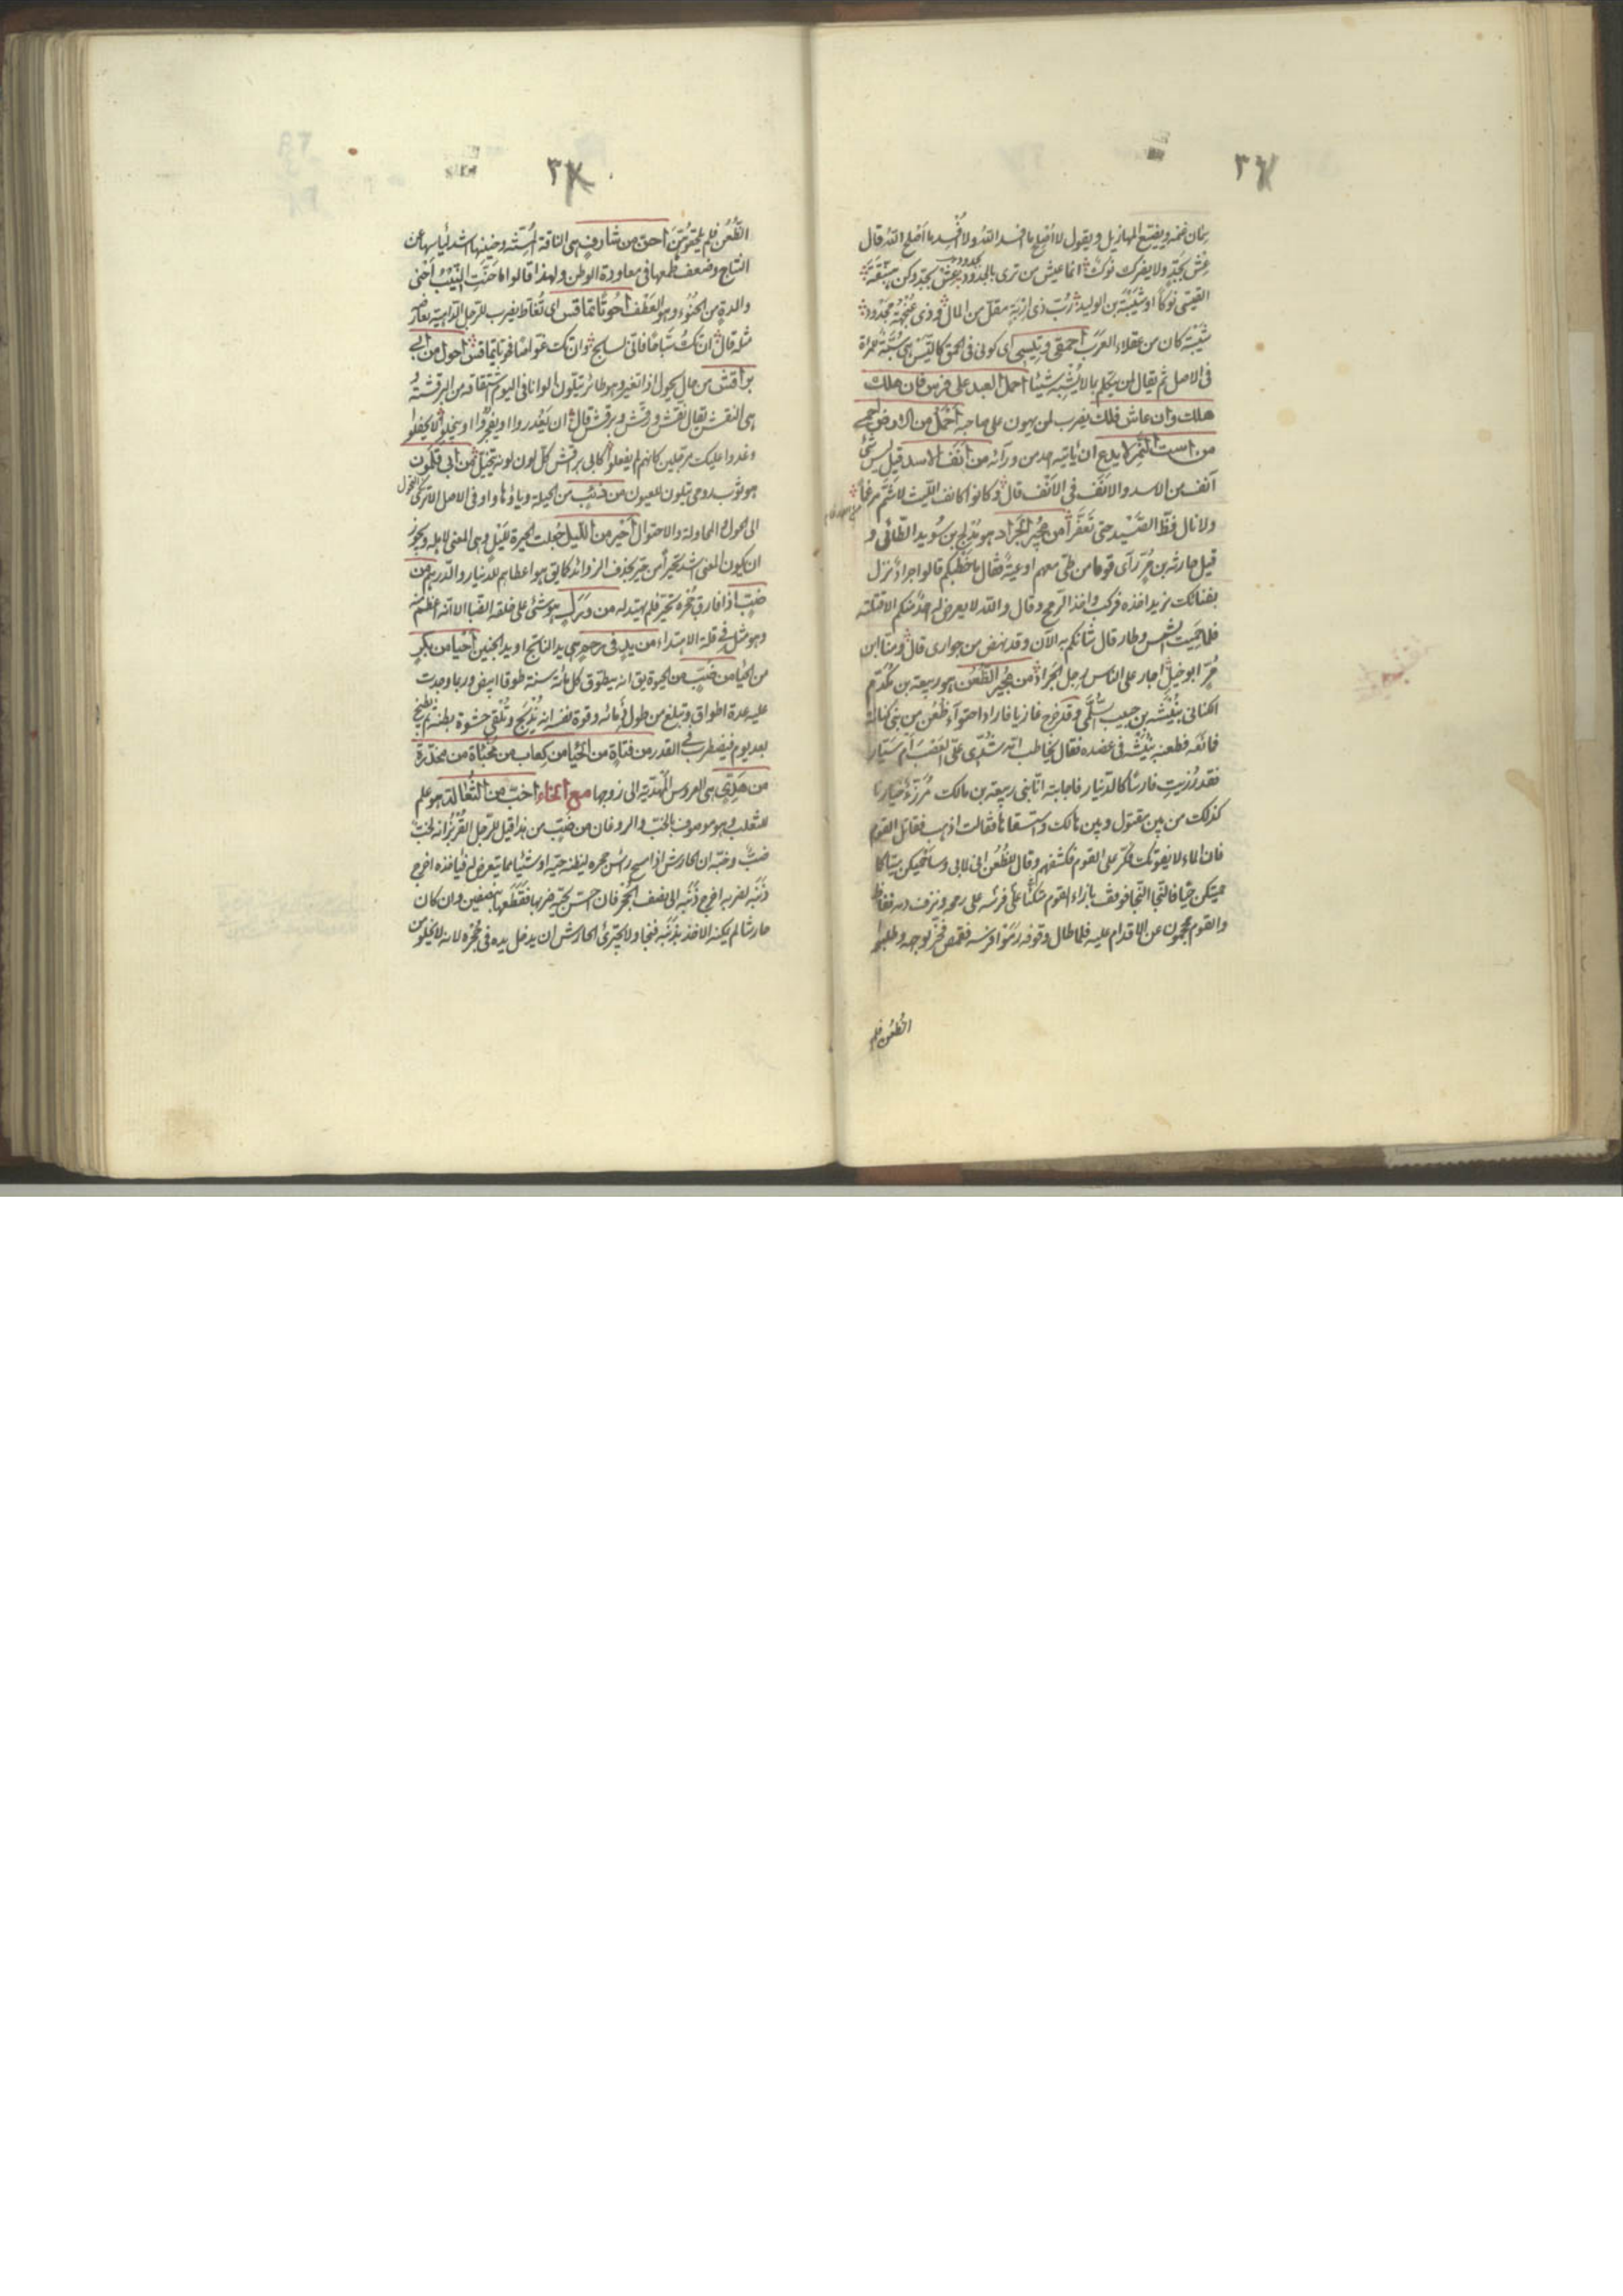 ٣٦
سمان غنمه ويضيّع المهازيل ويقول لا اُصْلِح ما افسد اللّه ولا اُفْسِد ما اَصلح اللّه قال
عِش بجَدّ ولا يضرك نوك انما عيش من ترى بالجدود عِشْ بجدّ وكن هبنّقة
القيسى نَوكًا او شَيْبَة بن الوليد رُبّ ذى اِرْبَة مقلّ من المال وذى عُنْجُهيّة مجدود
شيبة كان من عقلاء العرب احمقى وتيسى اى كونى فى الحمق كالتيس اى سُبّة للمراة
فى الاصل ثم يقال لمن يتكلم بالا يُشْبِه شيئا احمل العبد على فرس فان هلك
هلك وان عاش فلك يضرب لمن يهون على صاحبه احمل من الارض احمى
من است النمر لا يدع ان ياتيه احد من ورآئه من انف الاسد قيل ليس شئ
آنف من الاسد والانف فى الانف قال وكانوا كانف الليث لا شمّ مرغما
ولا نال فظّ الصَّيْد حتى تعفّرا من مُجير الجراد هو مُدْلج بن سُويد الطّائى و
قيل حارثه بن مُرّ رآى قوما من طىّ معهم اوعية فقال ما خطبكم قالوا جراد نزل
بفنائك نريد اخذه فركب واخذ الرّمح وقال واللّه لا يعرض له احد منكم الا قتلته
فلما حَمِيَت الشمس وطار قال شانكم به الآن وقد نهض من جوارى قال ومنّا ابن
مُرّ ابو حنبل اجار على الناس رجل الجراد من مُجير الظُّعُن هو ربيعة بن مُكدَّم
الكنانى نُبَيْشة بن حبيب السُّلَمى وقد خرج غازيا فاراد احتوآء ظُعُن من بنى كنانة
فمانعه فطعنه نبيشة فى عضده فقال يخاطب امّه شُدّى علىّ العَصْب اُمّ سَيّار
فقد رُزيتِ فارسًا كالدّينار فاجابته انّا بنى ربيعة بن مالك مُرَزّءٌ خيارنا
كذلك من بين مقتول وبين هالك واستسقاها فقالت اذهب فقاتل القوم
فان الماء لا يفوتك فكرّ على القوم فكشفهم وقال للظُعُن انى لمابى وساحميكن ميّتا كما
حميتكن حيّا فالنجا النجا فوقف بازاء القوم متّكئا على فرسه على رمحه ونزف دمه ففاظ
والقوم مُحجمون عن الاقدام عليه فلما طال وقوفه رَمَوا فرسه فقمص فخرّ لوجهه وطلبوا
الظُعُن فلم
٣٧
الظُّعُن فلم يلحقوهنّ احنّ من شارف هى الناقة المُسِنّة وحنينها اشد لياسها عن
النتاج وضعف طمعها فى معاودة الوطن ولهذا قالوا ما حَنّت النّيْبُ احنى
والدة من الحُنُوّ وهو العَطْف اَحُوتًا تماقس اى تُغاطّ يضرب للرّجل الدّاهية يعارضه
مثله قال ان تكُ سبّاحًا فانّى لسابح وان تك غوّاصًا فحوتا تماقس احول من ابى
براقش من حال يحول اذا تغير وهو طائر يتلون الوانا فى اليوم اشتقاقه من البرقشة
هى النقش يقال نقّش ورقّش وبرقش قال ان يَغْدروا او يفجروا او يبخلوا لا يحفلوا
وغدوا عليك مرجّلين كانهم لم يفعلوا كابى براقش كل لون لونه يتخيّل من ابى قَلَمُون
هو ثوب رومى يتلون للعيون من ذئب من الحيلة وياؤها واو فى الاصل الا ترى
الى الحول والمحاولة والاحتيال احير من الليل جُعلت الحيرة لليل وهى المعنى لاهله ويجوز
ان يكون المعنى اشد تحيّرا من تحيّر بحذف الزوائد كما يق هو اعطاهم للدينار والدرهم من
ضبّ اذا فارق جُحْره تحيّر فلم يهتد له من وَرَل هو شئ على خلقة الضّب الا انّه اعظم منه
وهو مثل فى قلة الاهتداء من يد فى رحم هى يد الناتج او يد الجنين احيا من بكر
من الحيا من ضب من الحيوة يق انه يطوّق كل مائة سنة طوقا ابيض وربما وجدت
عليه عدة اطواق وتبلغ من طول ذمائه وقوة نفسه انه يُذبَح وتُلقى حشوة بطنه ثم يُطبخ
بعد يوم فيضطرب فى القدر من فتاة من الحيا من كعاب من مخبّاة من مخدّرة
من هَدِىّ هى العروس المُهديّة الى زوجها مع الخاء اخبّ من ثُعالة هو علم
للثعلب وهو موصوف بالخبّ والروغان من ضبّ من هذا قيل للرّجل القُرْبُز انه لخبّ
ضبّ وخبّه ان الحارش اذا مسح راس جحره ليظنه حيّة او شئيا مما يتعرض له فياخذه اخرج
ذنبه ليضربه اخرج ذنبه الى نصف الجُحْر فان احسّ بحيّة ضربها فقطّعها بنصفين وان كان
حارشا لم يمكنه الاخذ بذنبه فنجا ولا يجترئ الحارش ان يدخل يده فى جُحْره لانه لا يخلو من